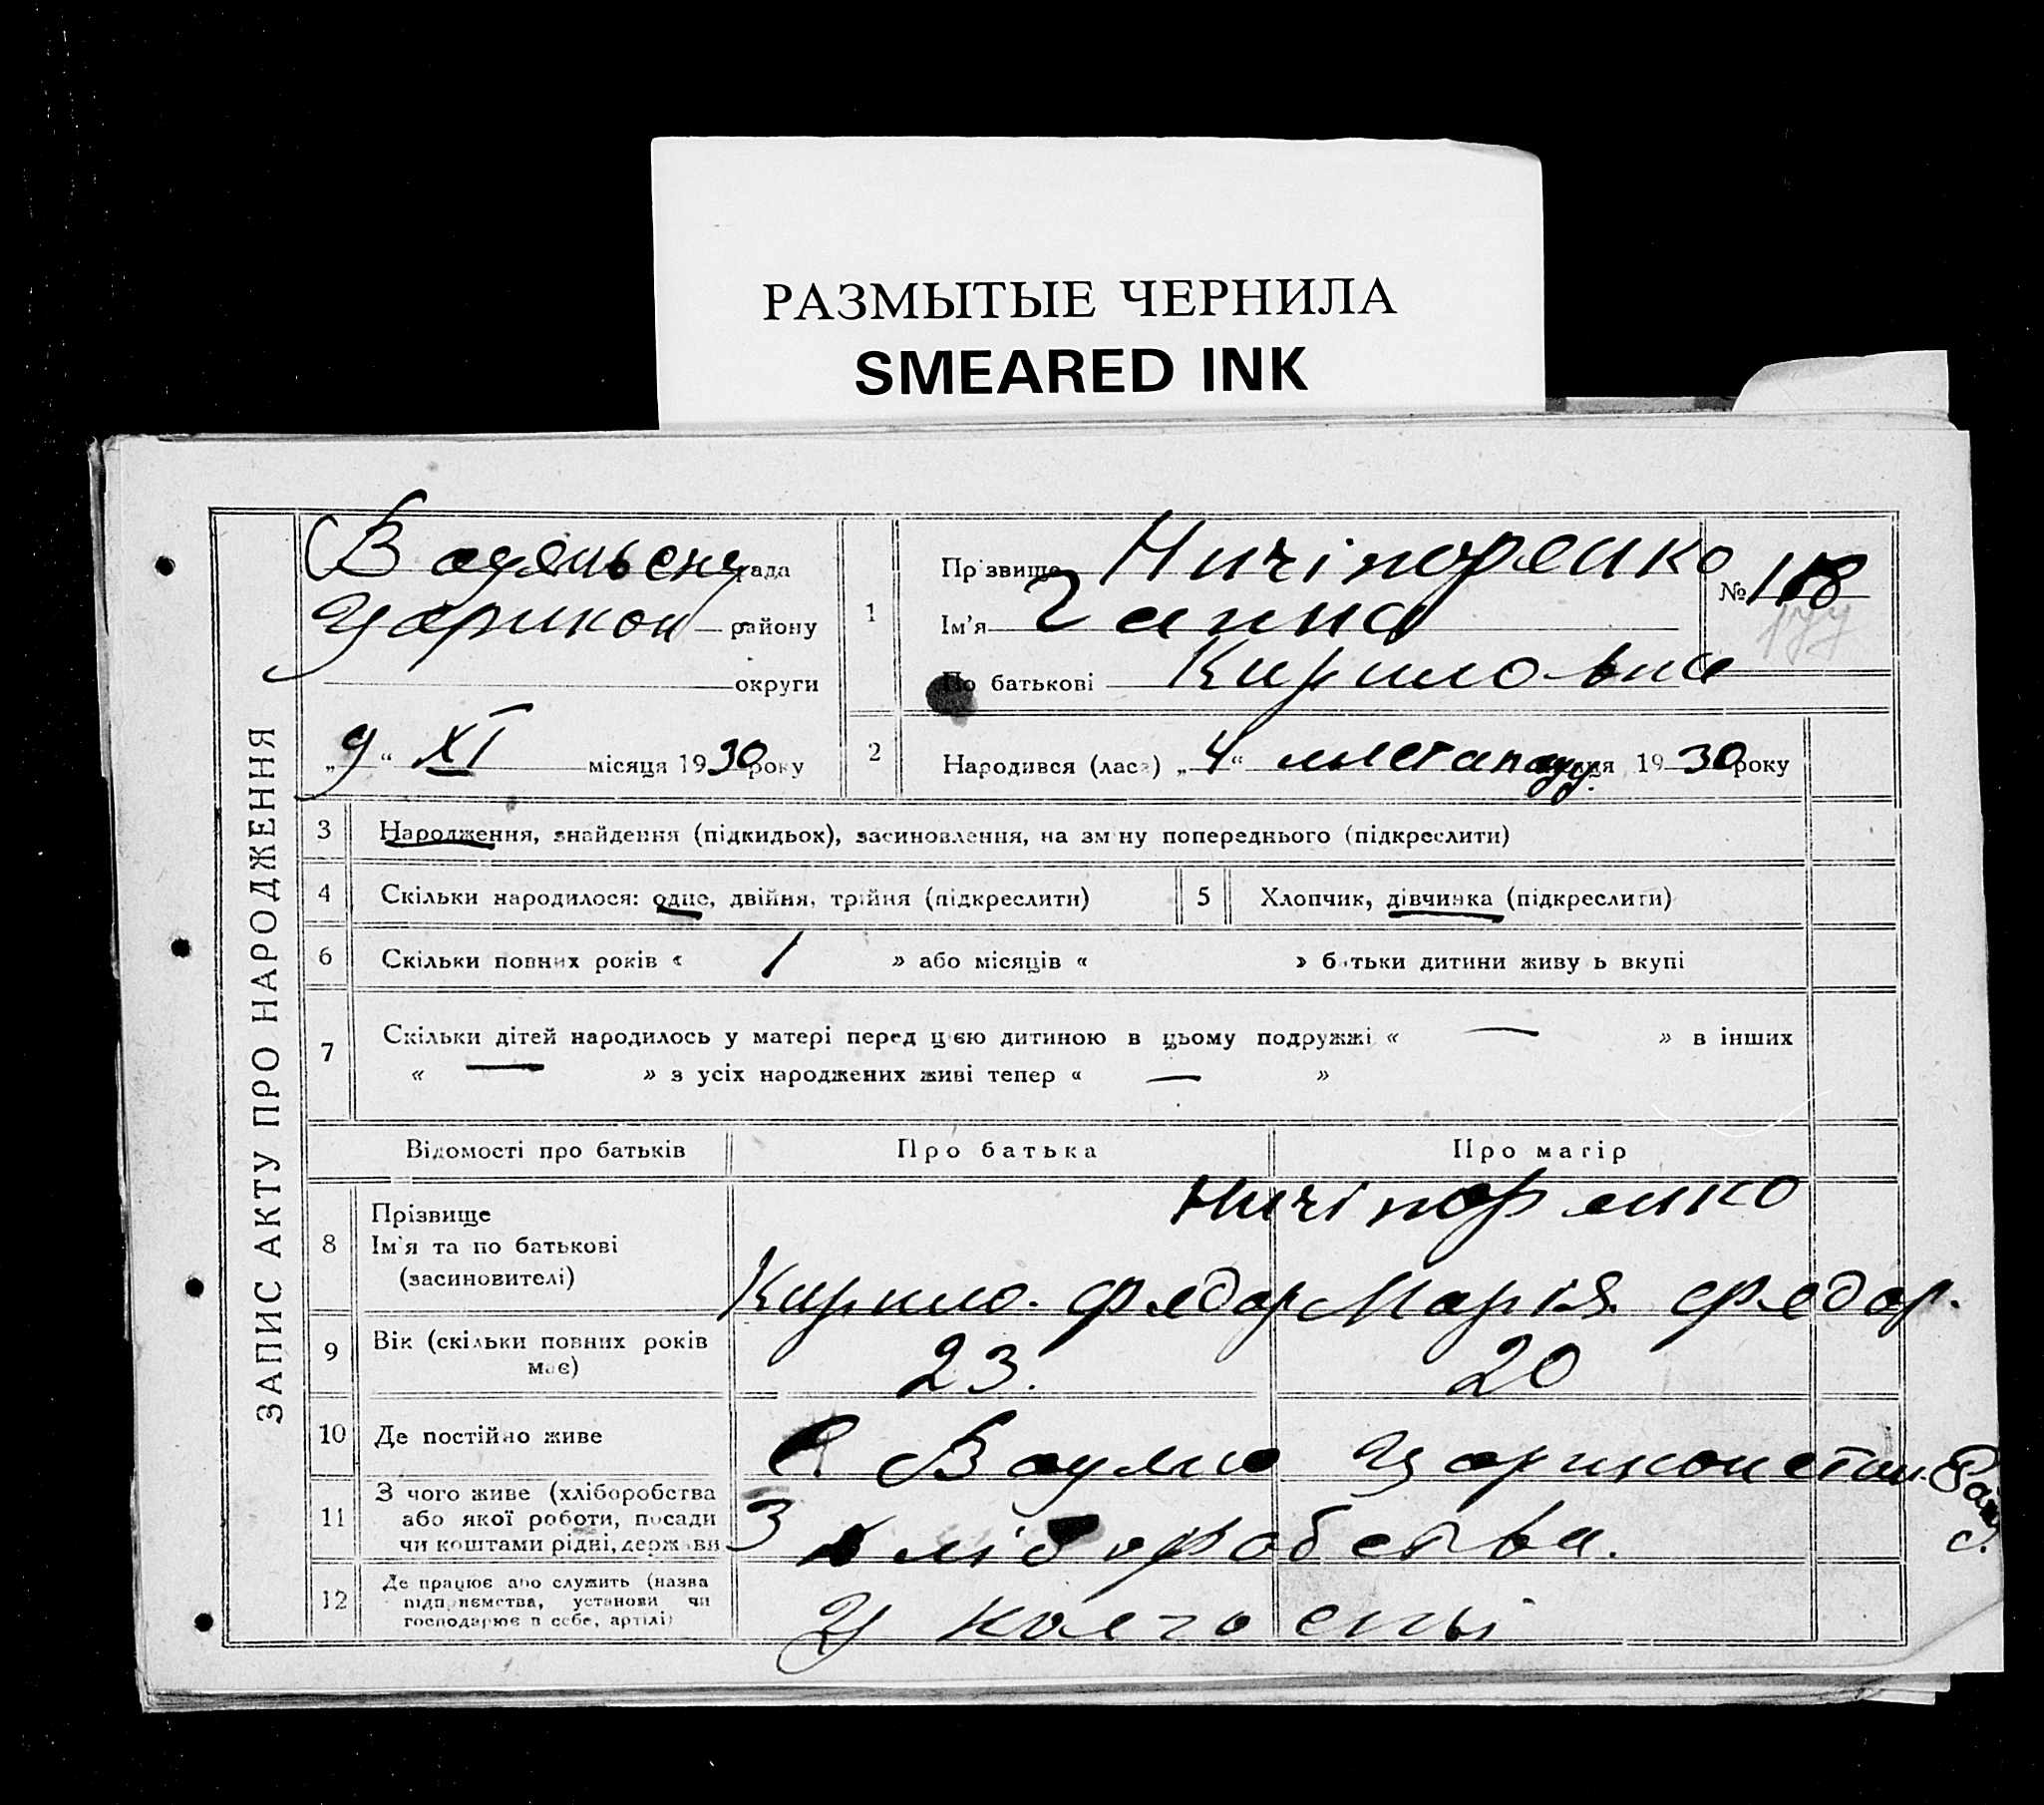 РАЗМЫТЫЕ ЧЕРНИЛА
SMEARED INK
ЗАПИС АКТУ ПРО НАРОДЖЕННЯ
Водянську рада
Царикон району
округи
„9“ XI місяця 1930 року
1
Прізвище Ничіпоренко
Ім’я Ганна
По батькові Кириловна
№ 118
177
2 Народився (лася) „4“ листопаду 1930 року
3 Народження, знайдення (підкидьох), засиновлення, на зміну попереднього (підкреслити)
4 Скільки народилося: одне, двійня, трійня (підкреслити) 5 Хлопчик, дівчинка (підкреслити)
6 Скільки повних років « 1 » або місяців « » батьки дитини живуть вкупі
7 Скільки дітей народилось у матері перед цією дитиною в цьому подружжі « — » в інших
« — » з усіх народжених живі тепер « — »
Відомості про батьків Про батька Про матір
8 Прізвище Ничіпоренко
Ім'я та по батькові
(засиновителі) Кирило. Федор Марія Федор.
9 Вік (скільки повних років має) 23. 20
10 Де постійно живе С Водяно Царикконстан. Рай
11 З чого живе (хліборобства
або якої роботи, посади
чи коштами рідні, держави З хліборобства.
12 Де працює або служить (назва
підприємства, установи чи
господарює в себе, артілі) У колгоспі